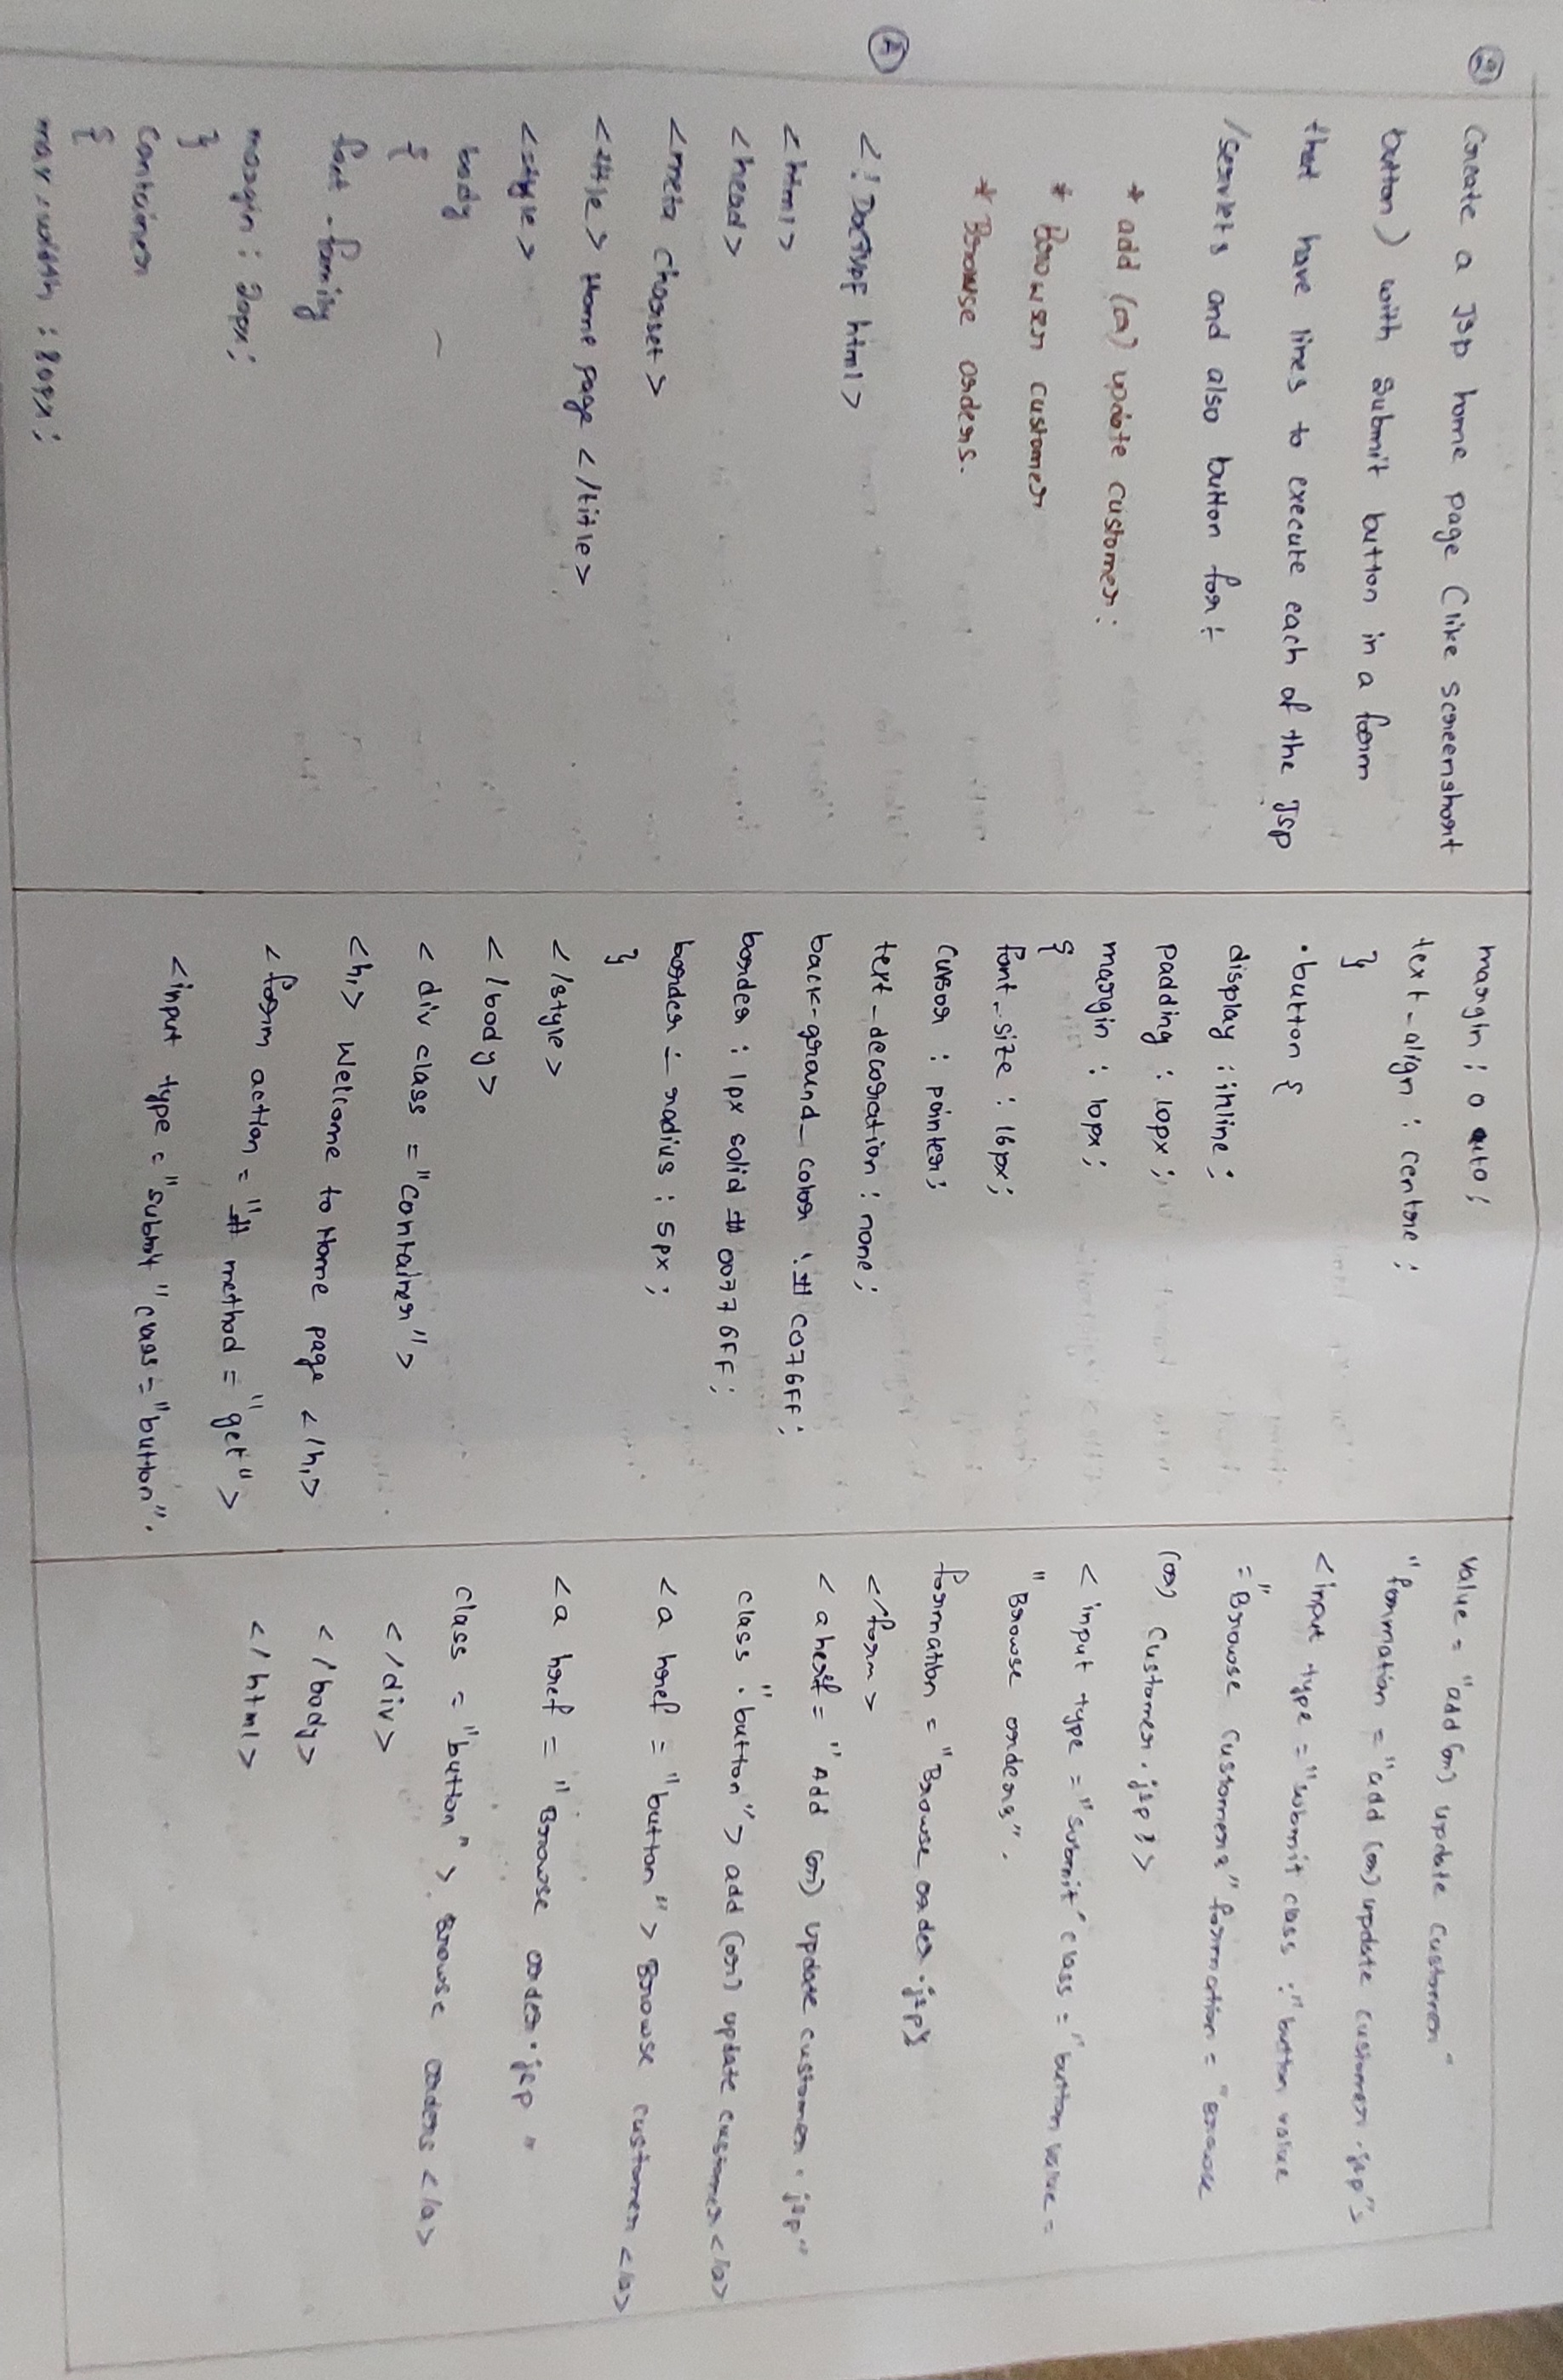 2) Create a Jsp home page (like screenshort
button) with submit button in a form
that have lines to execute each of the Jsp
/servlets and also button for :-
* add (or) update customer :
* Browser customer
* Browse orders.
1) <! Doctype html>
<html>
<head>
<meta charset>
<title> Home page </title>
<style>
body
{
font-family
margin : 20px;
}
container
{
max-width : 80px;
margin : 0 auto;
text-align : centre;
}
.button {
display : inline;
padding : 10px;
margin : 10px;
}
font-size : 16px;
cursor : pointer;
text-decoration : none;
back-ground_color : # C076FF;
border : 1px solid # 0077 6FF;
border - radius : 5px;
}
</style>
</body>
<div class = "container">
<h1> Wellcome to Home page </h1>
<form action = "# method = "get">
<input type = "submit" class = "button".
value = "add (or) update customer"
"formation = "add (or) update customer.jsp"s
<input type = "submit class : "button value
= "Browse customers" formation = "Browse
(or) customer.jsp}>
<input type = "submit' class = "button value =
"Browse orders".
formation = "Browse order.jsp}
</form>
<a herf = "Add (or) update customer.jsp"
class "button"> add (or) update customer </a>
<a href = "button"> Browse customer </a>
<a href = "Browse order.jsp"
class = "button"> Browse orders </a>
</div>
</body>
</html>